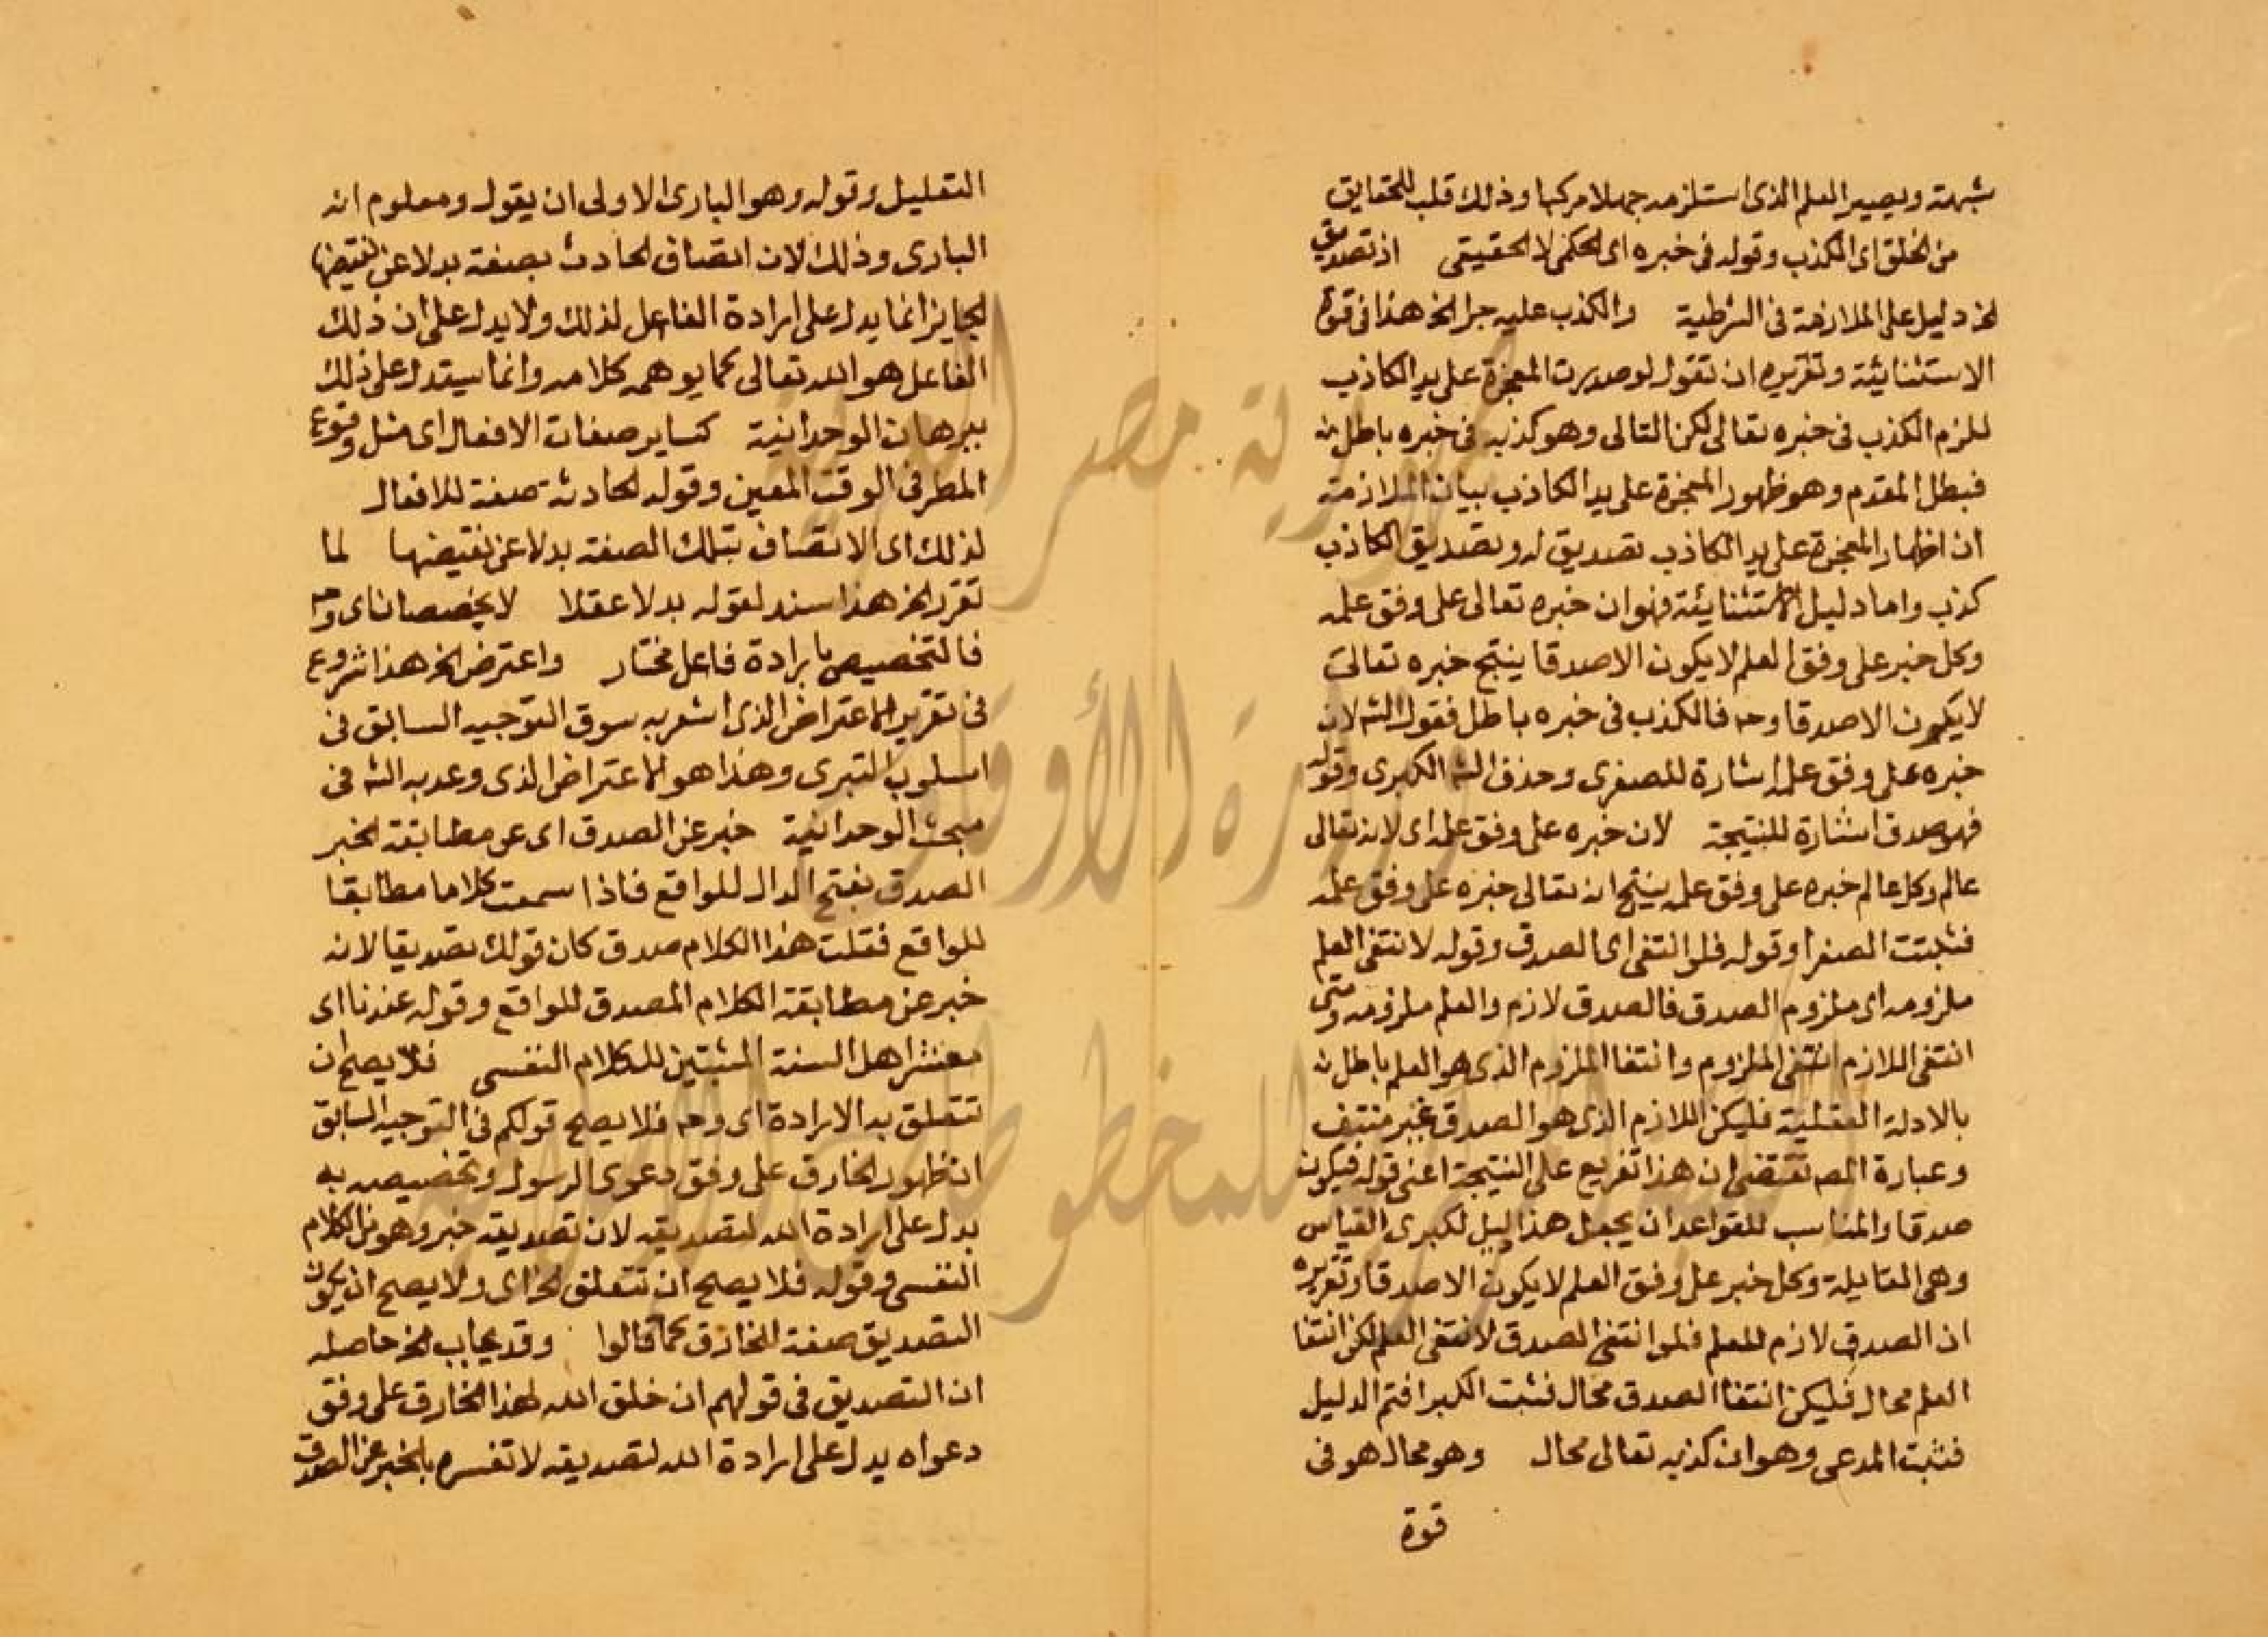 شبهة ويصير العلم الذى استلزمه جهلا مركبا وذلك قلب للحقايق
من الخلق اى الكذب وقوله فى خبره اى الحكمى لا الحقيقى اذ تصديق
الخ دليل على الملازمة فى الشرطية والكذب عليه جر الخ هذا فى قوة
الاستثنائية وتقريره ان تقول لو صدرت المعجزة على يد الكاذب
للزم الكذب فى خبره تعالى لكن التالى وهو كذبه فى خبره باطل
فبطل المقدم وهو ظهور المعجزة على يد الكاذب بيان الملازمة
ان اظهار المعجزة على يد الكاذب تصديق له وتصديق الكاذب
كذب واما دليل الاستثنائية فهو ان خبره تعالى على وفق علمه
وكل خبر على وفق العلم لا يكون الا صدقا ينتج خبره تعالى
لا يكون الا صدقا وحـ فالكذب فى خبره باطل فقول الشـ لان
خبره على وفق علمه اشارة للصغرى وحذف الشـ الكبرى وقوله
فهو صدق اشارة للنتيجة لان خبره على وفق علمه اى لانه تعالى
عالم وكل عالم خبره على وفق علمه ينتج انه تعالى خبره على وفق علمه
فثبتت الصغرا وقوله فلو انتفى اى الصدق وقوله لانتفى العلم
ملزومه اى ملزوم الصدق فالصدق لازم والعلم ملزومه ومتى
انتفى اللازم انتفى الملزوم وانتفا الملزوم الذى هو العلم باطل
بالادلة العقلية فليكن اللازم الذى هو الصدق غير منتف
وعبارة المصـ تقتضى ان هذا تفريع على النتيجة اعنى قوله فيكون
صدقا والمناسب للقواعد ان يجعل هذا دليل لكبرى القياس
وهى القايلة وكل خبر على وفق العلم لا يكون الا صدقا وتقريره
ان الصدق لازم للعلم فلو انتفى الصدق لانتفى العلم لكن انتفا
العلم محال فليكن انتفا الصدق محال فثبت الكبرا فتم الدليل
فثبت المدعى وهو ان كذبه تعالى محال وهو محال هو فى
قوة
التعليل وقوله وهو البارى الاولى ان يقول ومعلوم انه
البارى وذلك لان اتصاف الحادث بصفة بدلا عن نقيضها
الجايز انما يدل على ارادة الفاعل لذلك ولا يدل على ان ذلك
الفاعل هو الله تعالى كما يوهمه كلامه وانما سيتدل على ذلك
ببرهان الوحدانية كساير صفات الافعال اى مثل وقوع
المطر فى الوقت المعين وقوله الحادثة صفة للافعال
لذلك اى الاتصاف بتلك الصفة بدلا عن نقيضها لما
تقرر الخ هذا سند لقوله بدلا عقلا لا يخصصان اى وحـ
فالتخصيص بارادة فاعل مختار واعترض الخ هذا شروع
فى تقرير الاعتراض الذى اشعر به سوق التوجيه السابق فى
اسلوب التبرى وهذا هو الاعتراض الذى وعد به الشـ فى
مبحث الوحدانية خبر عن الصدق اى عن مطابقة الخبر
الصدق بفتح الدال للواقع فاذا سمعت كلاما مطابقا
للواقع فقلت هذا الكلام صدق كان قولك تصديقا لانه
خبر عن مطابقة الكلام المصدق للواقع وقوله عندنا اى
معشر اهل السنة المثبتين للكلام النفسى فلا يصح ان
تتعلق به الارادة اى وحـ فلا يصح قولكم فى التوجيه السابق
ان ظهور الخارق على وفق دعوى الرسول وتخصيصه به
يدل على ارادة الله لتصديقه لان تصديقه خبر وهو من الكلام
النفسى وقوله فلا يصح ان تتعلق الخ اى ولا يصح ان يكون
التصديق صفة للخارق كما قالوا وقد يجاب الخ حاصله
ان التصديق فى قولهم ان خلق الله لهذا الخارق على وفق
دعواه يدل على ارادة الله لتصديقه لا تفسره بالخبر عن الصدق